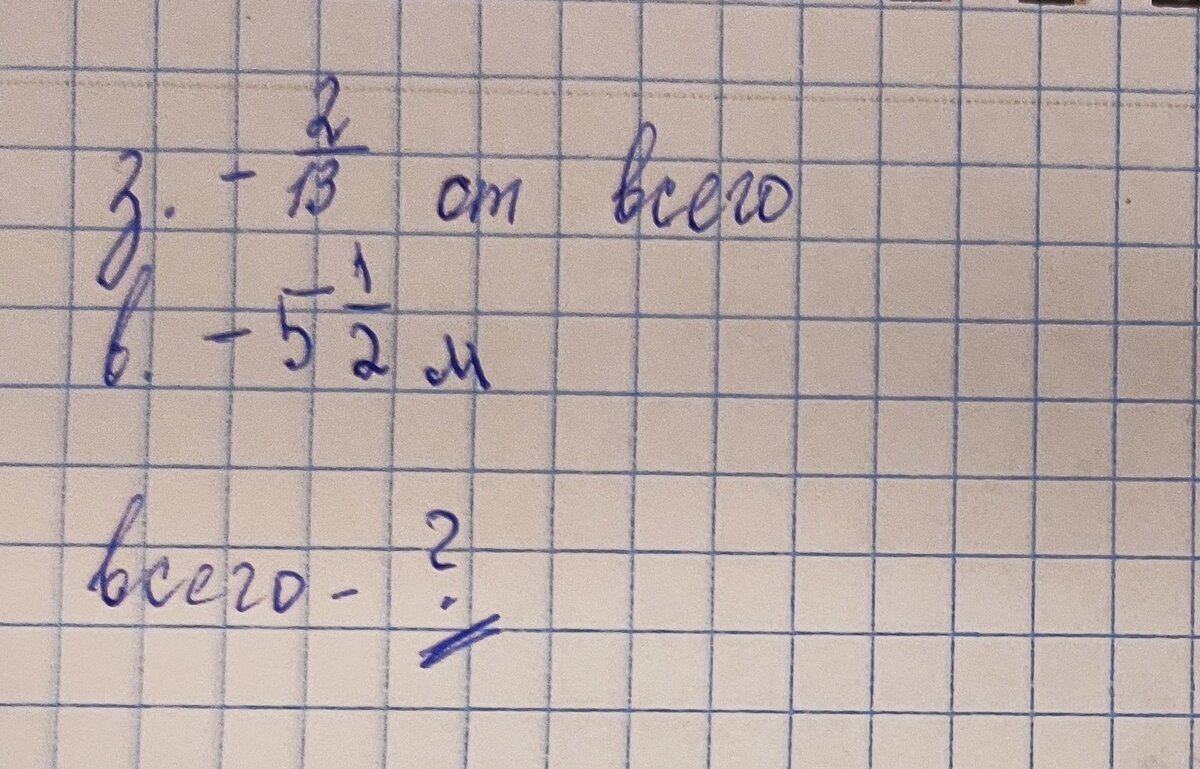 з. - 2/13 от всего
в. - 5 1/2 м
всего - ?